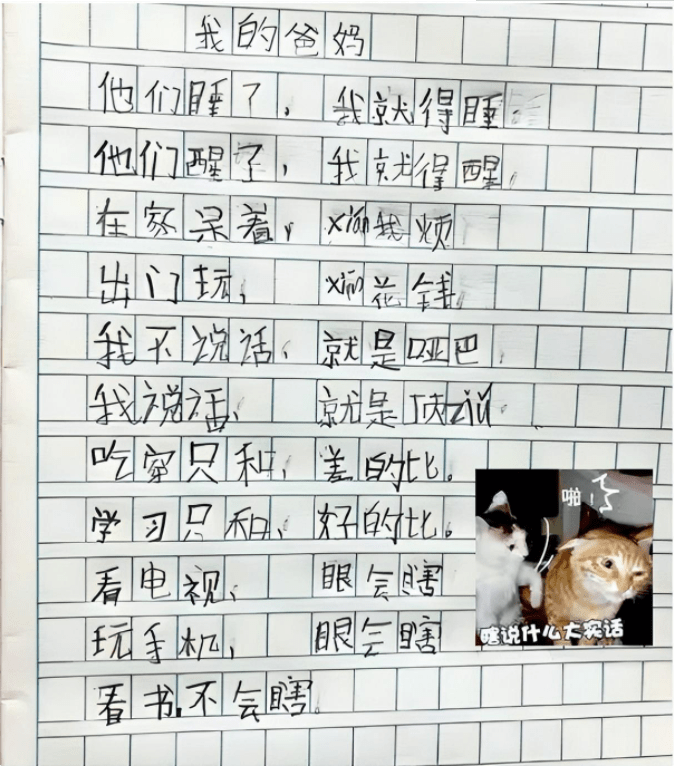 我的爸妈
他们睡了，我就得睡
他们醒了，我就得醒，
在家呆着，xián我烦
出门玩，xián花钱
我不说话、就是哑巴
我说话、就是顶zuǐ。
吃穿只和，差的比。
学习只和、好的比。
看电视、眼会瞎
玩手机，眼会瞎
看书.不会瞎。
啪！
瞎说什么大实话